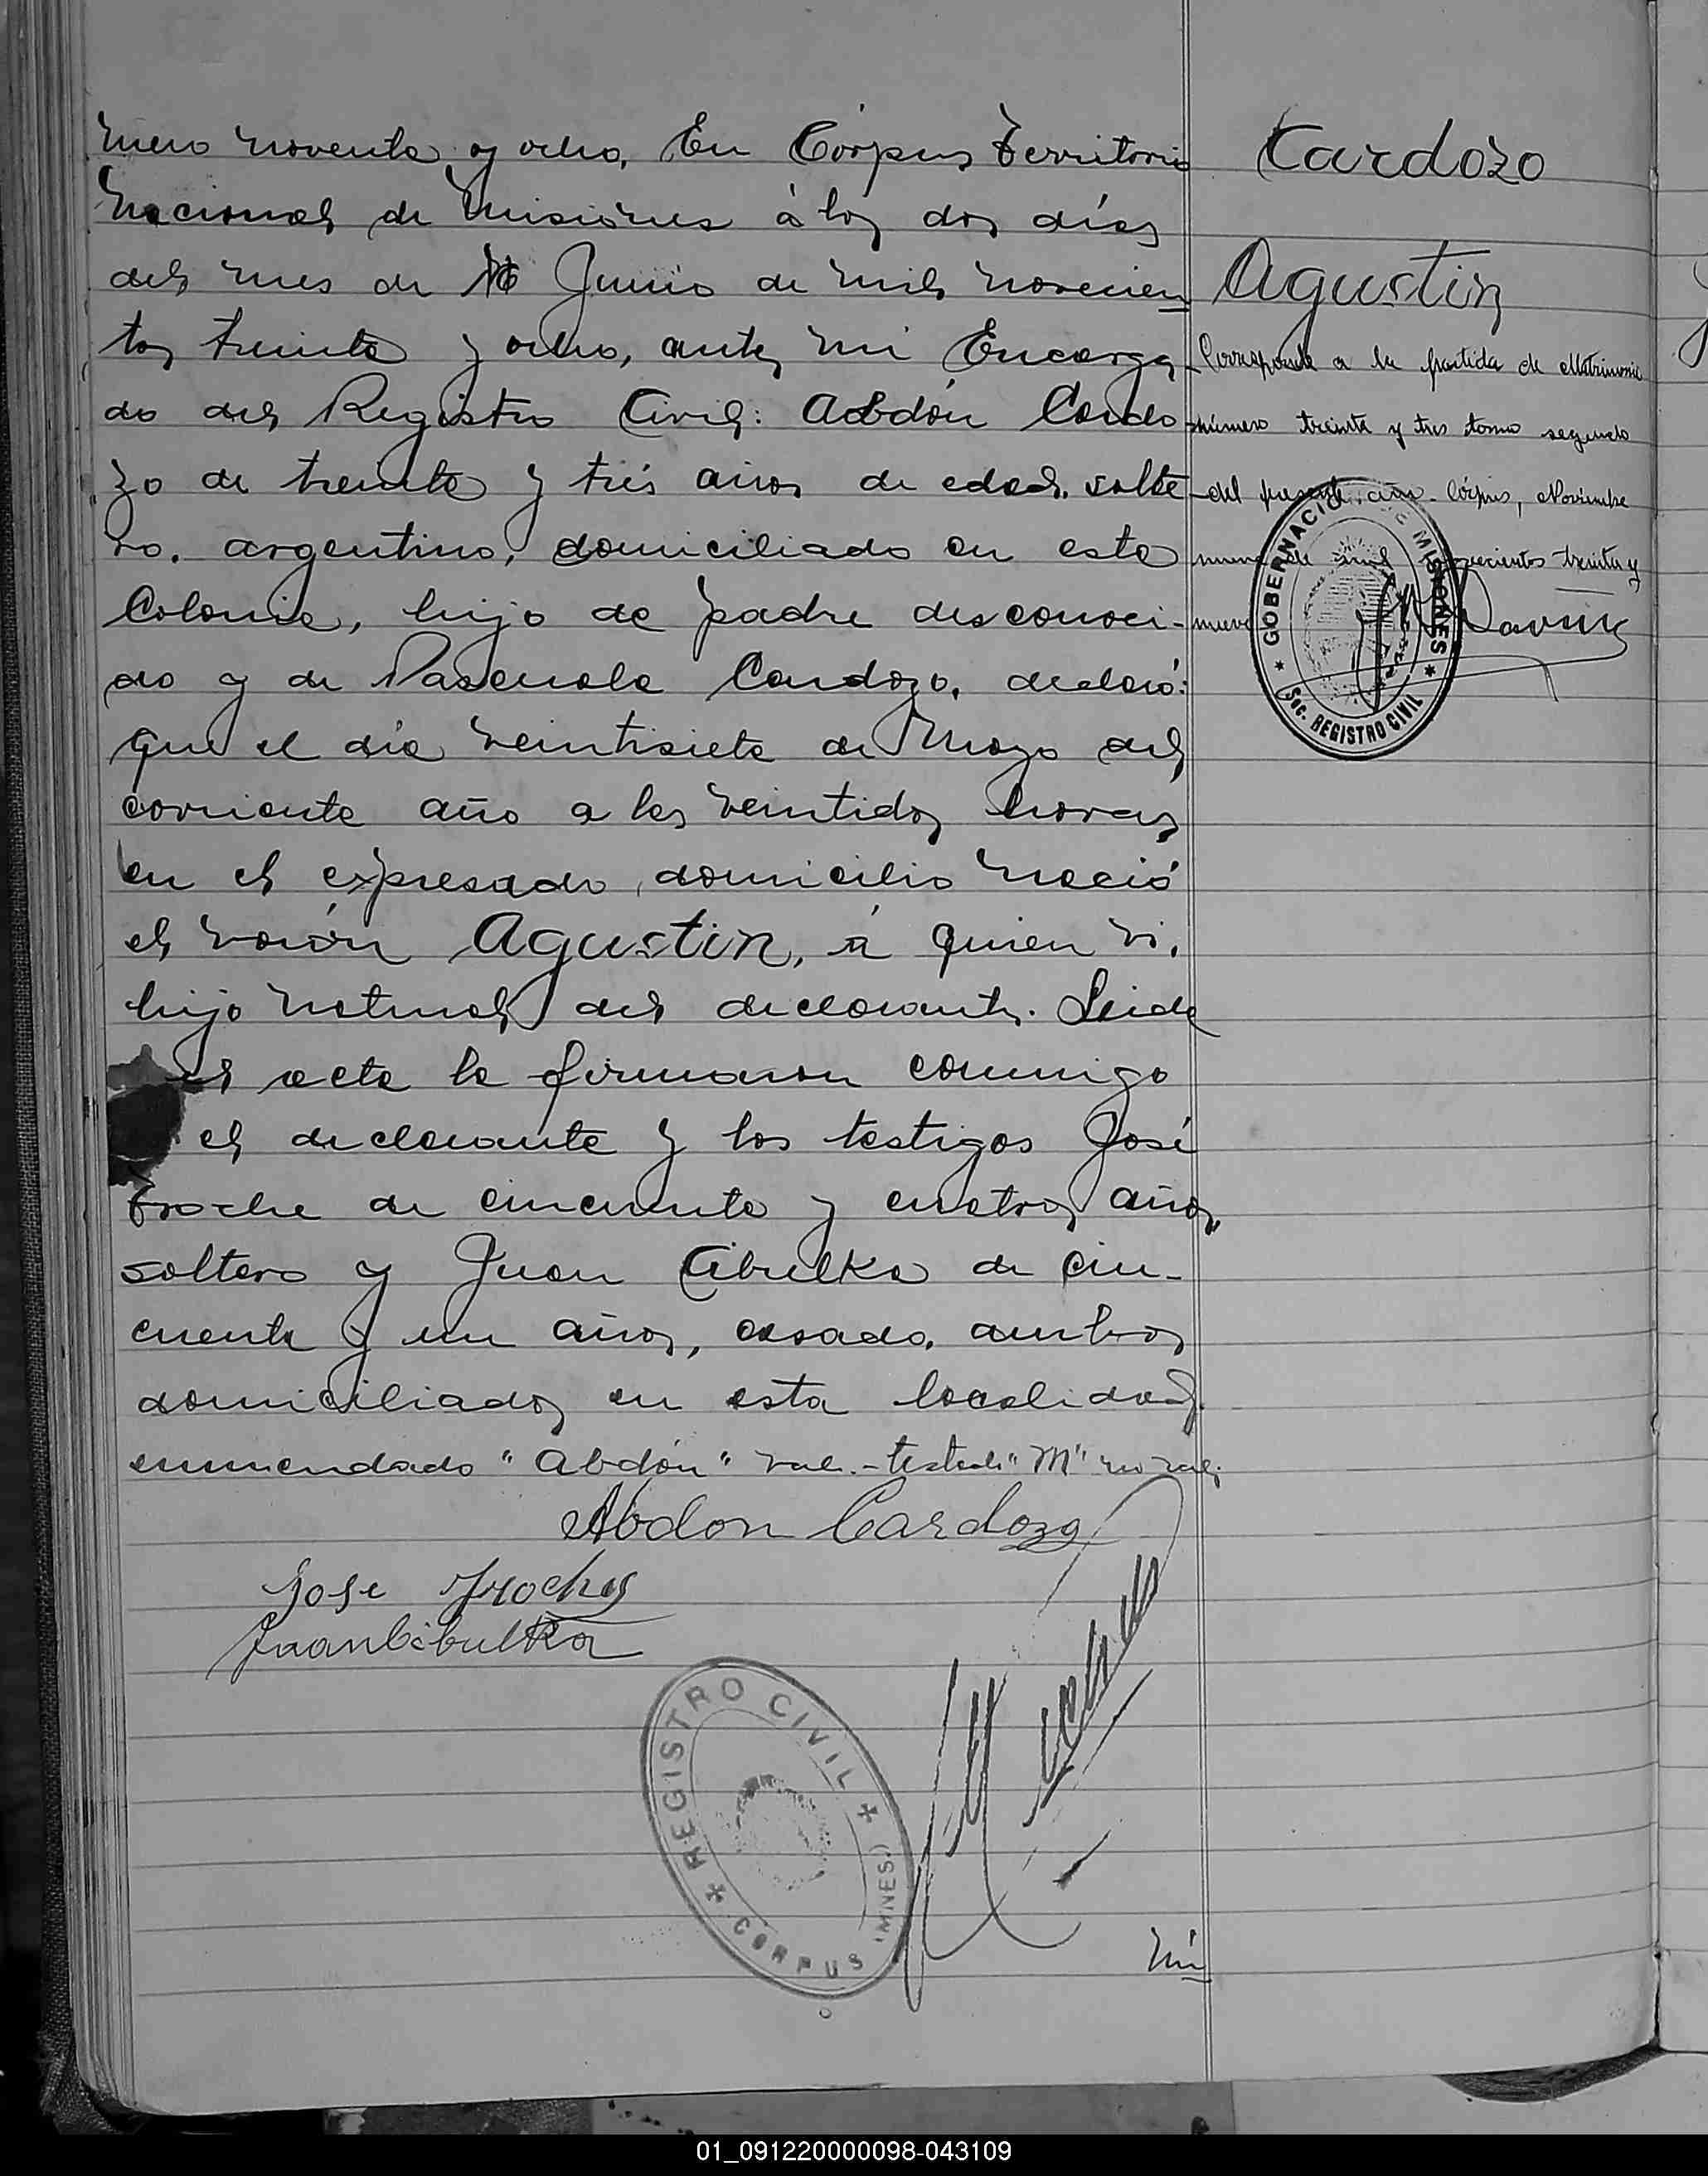 mero noventa y ocho, En Córpus Territorio
Nacional de Misiónes á los dos días
del mes de Junio de mil novecien
tos treinta y ocho, ante mi Encarga
do del Registro Civil: Abdón Cardo
zo de treinta y trés años de edad, solte
ro, argentino, domiciliado en esta
Colonia, hijo de padre desconoci-
do y de Pascuala Cardozo, declaró:
que el día veintisiete de Mayo del
corriente año a las veintidos horas
en el expresado domicilio nació
el varón Agustin, á quien vi,
hijo natural del declarante. Leida
el acta la firmaron conmigo
el declarante y los testigos José
Troche de cincuenta y cuatro años,
soltero y Juan Cibulka de cin-
cuenta y un años, casado, ambos
domiciliados en esta localidad.
enmendado "Abdón" vale.-testado "M" no vale
Abdon Cardozo
Jose Troche
Juan Cibulka
REGISTRO CIVIL
CORPUS (MNES.)
Nú
Cardozo
Agustin
Corresponde a la partida de Matrimonio
número treinta y tres tomo segundo
del presente año. Córpus, Noviembre
nueve de mil novecientos treinta y
nueve
GOBERNACION DE MISIONES
Sec. REGISTRO CIVIL
01_091220000098-043109